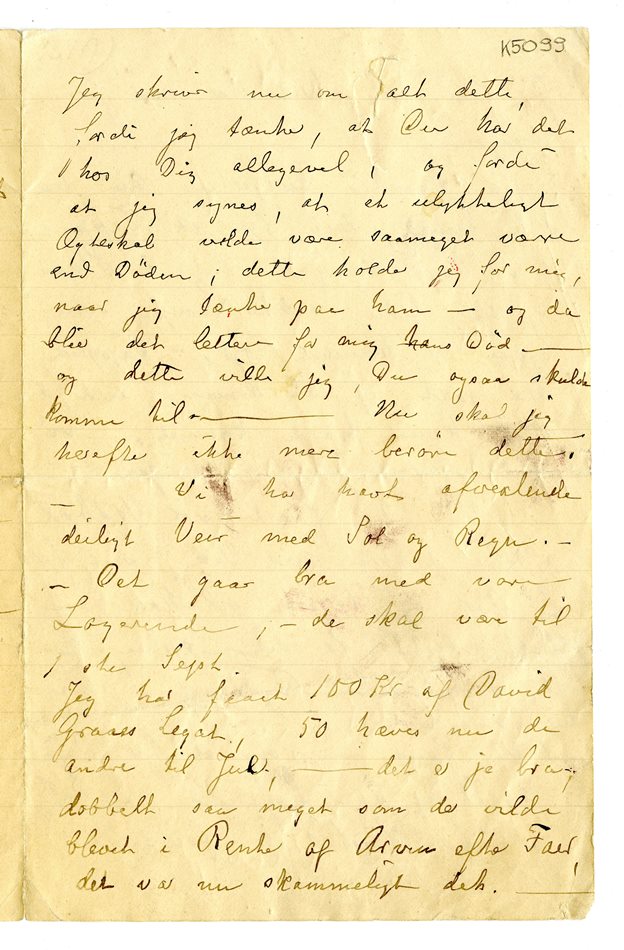 K5099
Jeg skriver nu om alt dette,
fordi jeg tænke, at Du har det
hos Dig allegevel, og fordi
at jeg synes, at et ulykkeligt
Ægteskab vilde være saameget værre
end Døden; dette holde jeg for mig,
naar jeg tænke paa ham – og da
blir det lettere for mig hans Død —
og dette vilde jeg, Du ogsaa skulde
komme til. — Nu skal jeg
herefte ikke mere berøre dette.
Vi har havt afvexlende
deiligt Veir med Sol og Regn. –
– Det gaar bra med vore
Logerende, – de skal være til
1ste Sept.
Jeg har faaet 100 Kr af David
Graaes Legat, 50 hæves nu de
andre til Jul, — det er jo bra,
dobbelt saa meget som de vilde
blevet i Rente af Arven efte Faer,
det var nu skammeligt det. —